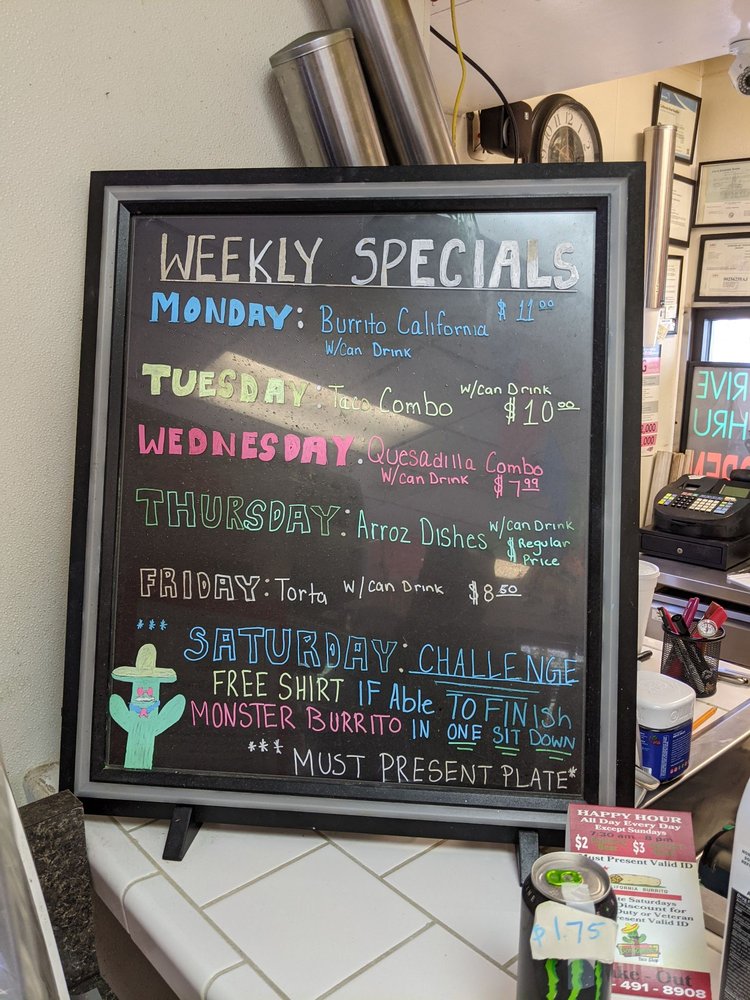 WEEKLY SPECIALS
MONDAY: Burrito California $11.00
W/Can Drink
TUESDAY: Taco Combo W/Can Drink $10.00
WEDNESDAY: Quesadilla Combo
W/Can Drink $7.99
THURSDAY: Arroz Dishes W/Can Drink
$ Regular
Price
FRIDAY: Torta W/Can Drink $8.50
*** SATURDAY: CHALLENGE
FREE SHIRT IF Able TO FINISH
MONSTER BURRITO IN ONE SIT DOWN
*** MUST PRESENT PLATE*
DRIVE
THRU
OPEN
HAPPY HOUR
All Day Every Day
Except Sundays
7:30 am - 8 pm
$2 $3
Must Present Valid ID
CALIFORNIA BURRITO
Saturdays
Discount for
Duty or Veteran
Present Valid ID
Taco Shop
Take-Out
491-8908
$1.75